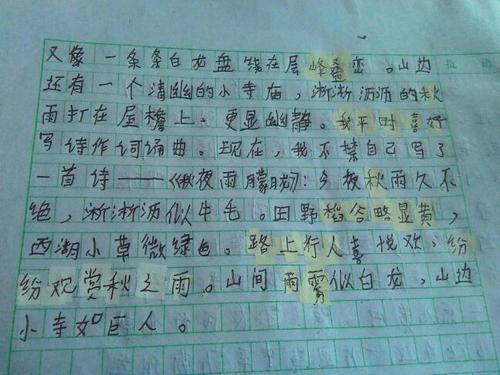 又像一条条白龙盘饶在层峰叠峦。山边
还有一个清幽的小寺庙，淅淅沥沥的秋
雨打在屋檐上。更显幽静。我平时喜好
写诗作词诵曲。现在，我不禁自己写了
一首诗——《秋夜雨朦胧》：今夜秋雨久不
绝，淅淅沥沥似牛毛。田野稻谷略显黄，
西湖小草微绿色。路上行人喜悦欢，纷
纷观赏秋之雨。山间雨雾似白龙，山边
小寺如巨人。